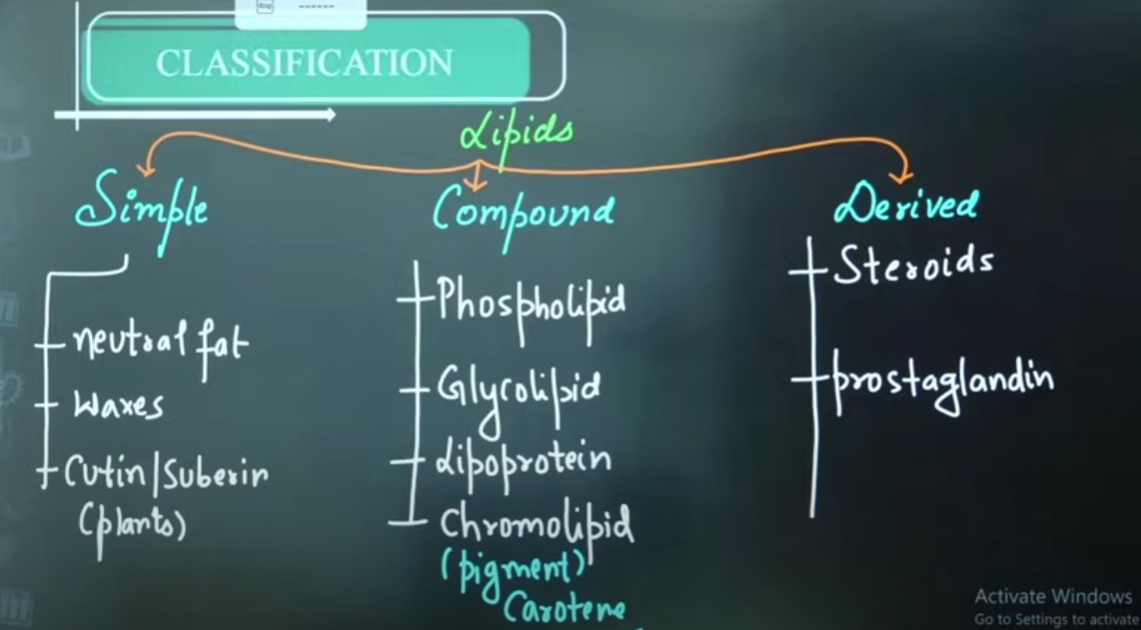 CLASSIFICATION
Lipids
Simple
neutral fat
Waxes
Cutin/Suberin
(plants)
Compound
Phospholipid
Glycolipid
Lipoprotein
Chromolipid
(pigment)
Carotene
Derived
Steroids
prostaglandin
Activate Windows
Go to Settings to activate